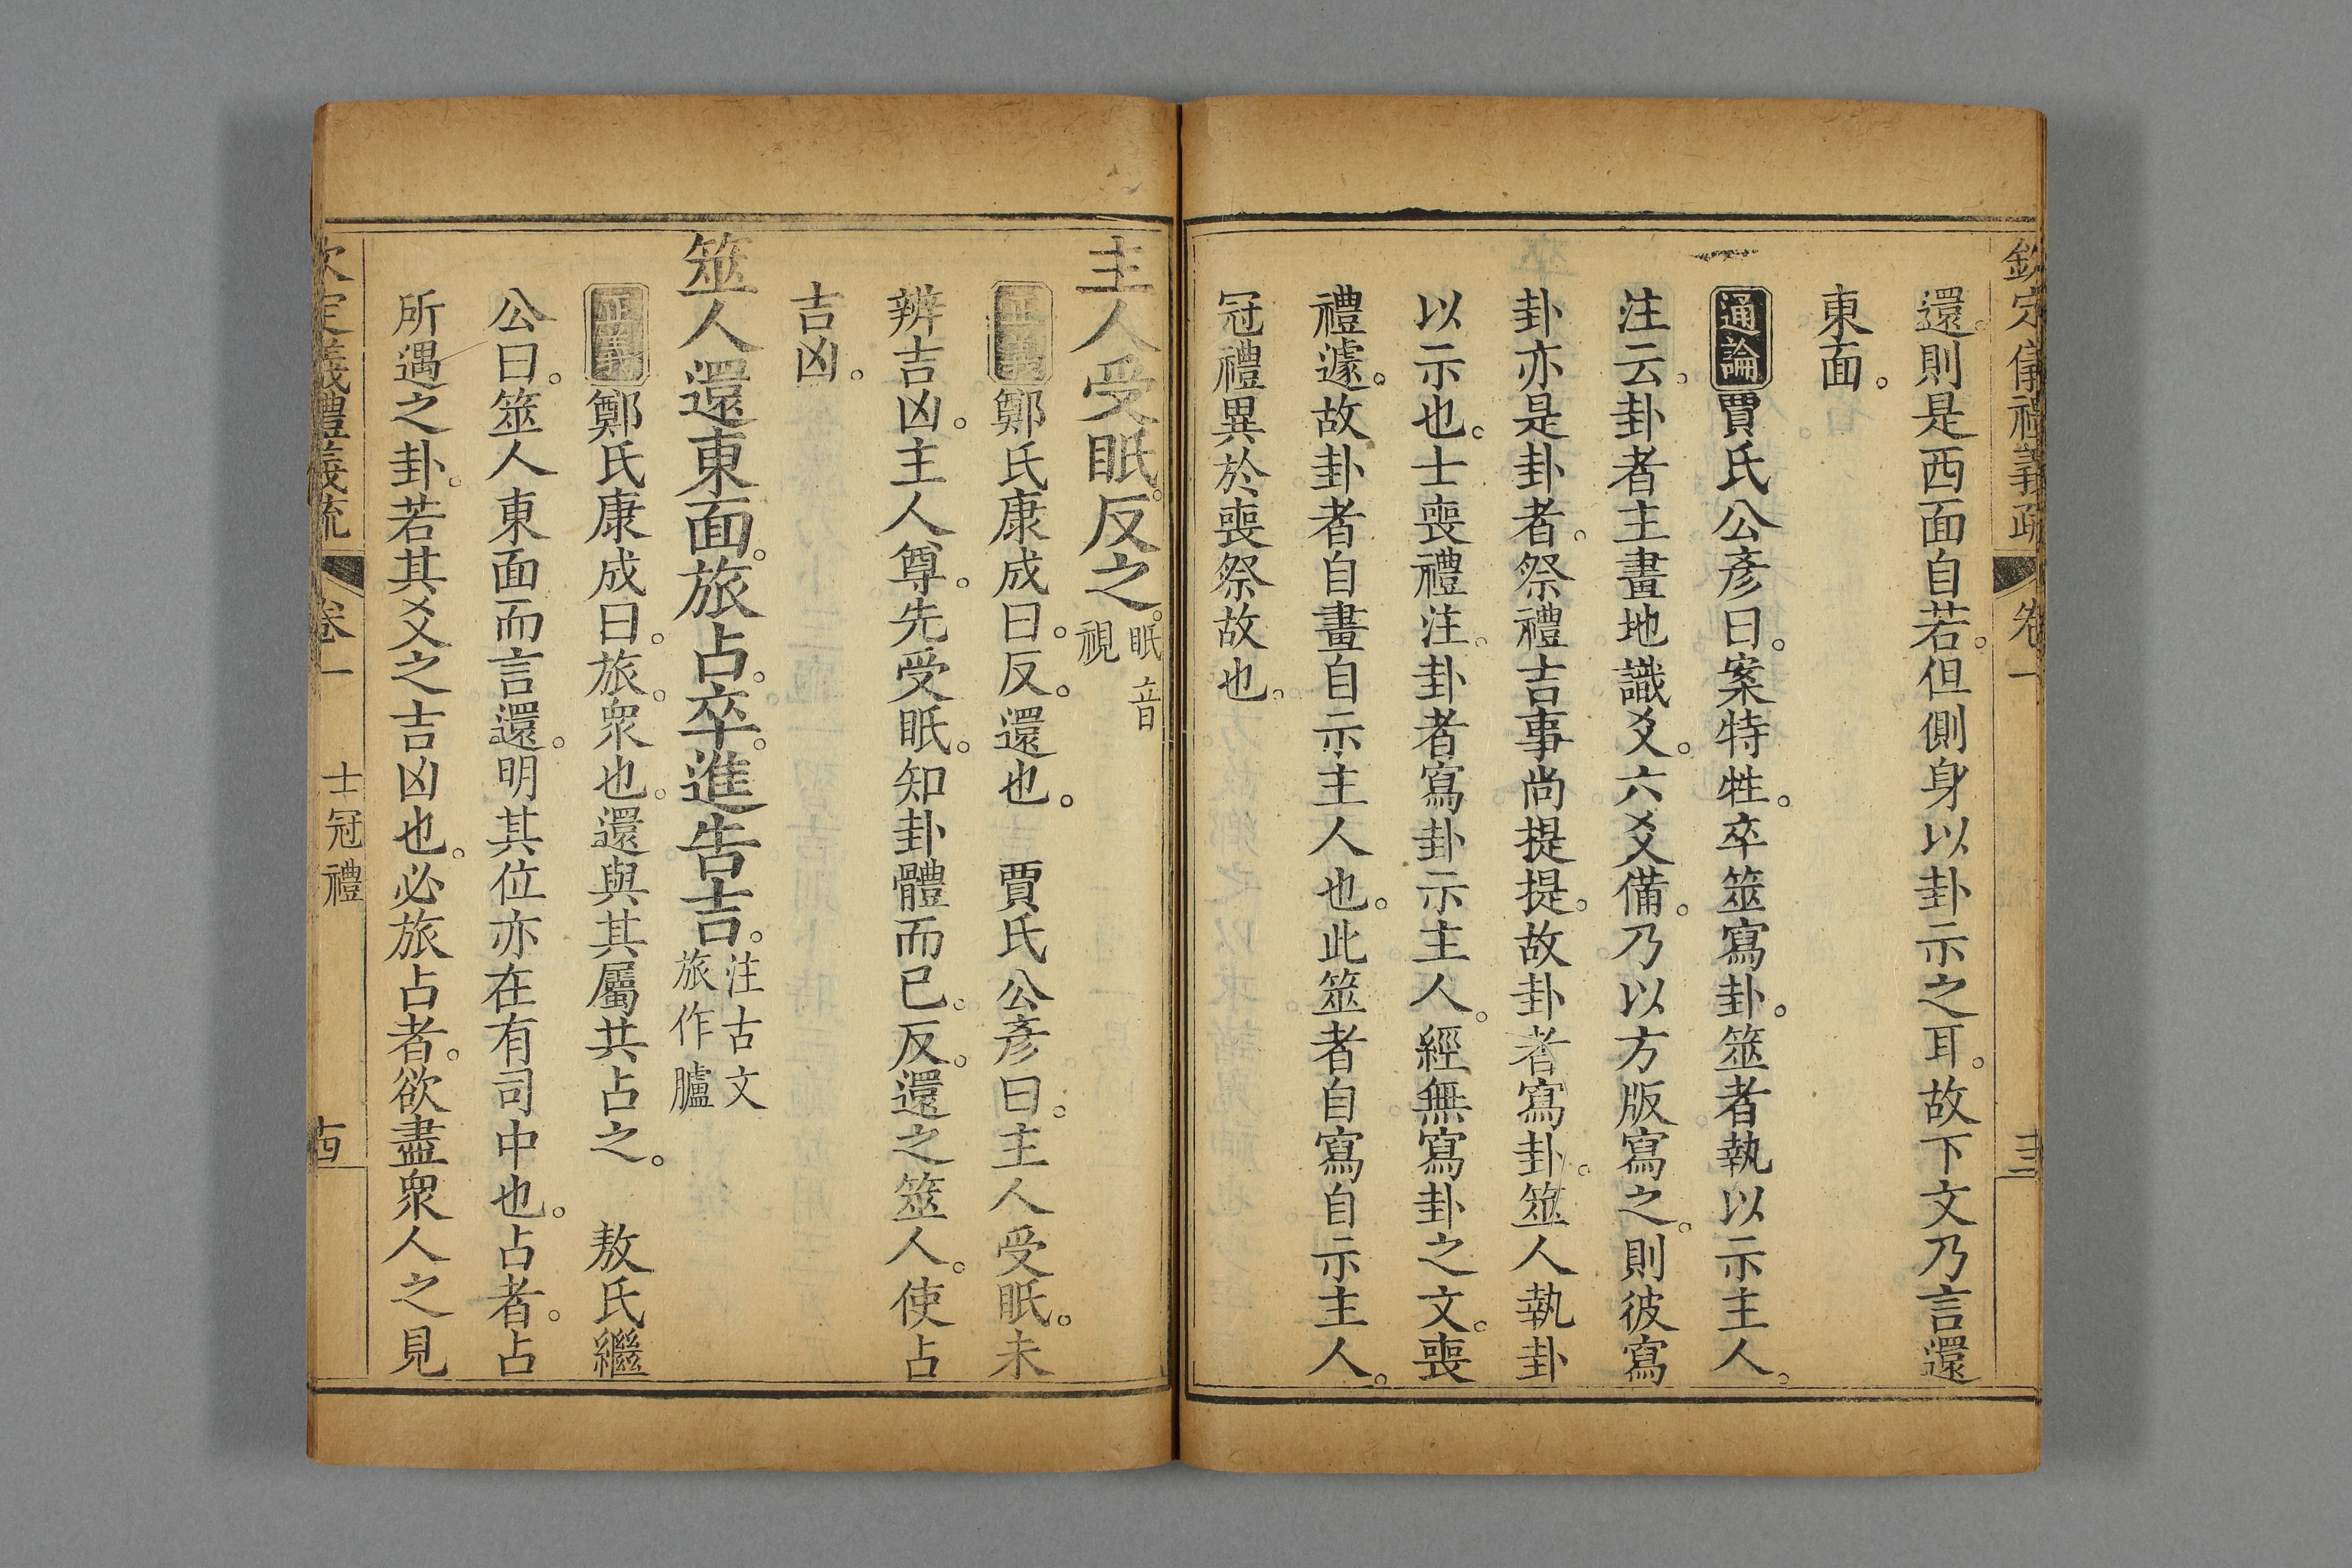 欽定儀禮義疏 卷一
還則是西面自若。但側身以卦示之耳。故下文乃言還
東面。
通論 賈氏公彥曰。案特牲。卒筮寫卦。筮者執以示主人。
注云。卦者主畫地識爻。六爻備。乃以方版寫之。則彼寫
卦亦是卦者。祭禮吉事尚提提。故卦者寫卦。筮人執卦
以示也。士喪禮注。卦者寫卦示主人。經無寫卦之文。喪
禮遽。故卦者自畫自示主人也。此筮者自寫自示主人。
冠禮異於喪祭故也。
主人受眡。反之。眡音
視
正義 鄭氏康成曰。反。還也。 賈氏公彥曰。主人受眡。未
辨吉凶。主人尊。先受眡。知卦體而已。反。還之筮人。使占
吉凶。
筮人還東面。旅占。卒。進告吉。注古文
旅作臚
正義 鄭氏康成曰。旅。衆也。還與其屬共占之。 敖氏繼
公曰。筮人東面而言還。明其位亦在有司中也。占者。占
所遇之卦。若其爻之吉凶也。必旅占者。欲盡衆人之見
欽定儀禮義疏 卷一 士冠禮